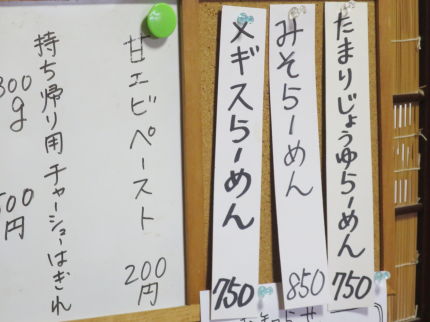 たまりじょうゆらーめん
750
みそらーめん
850
メギスらーめん
750
甘エビペースト
200
円
持ち帰り用チャーシューはぎれ
300
g
500
円